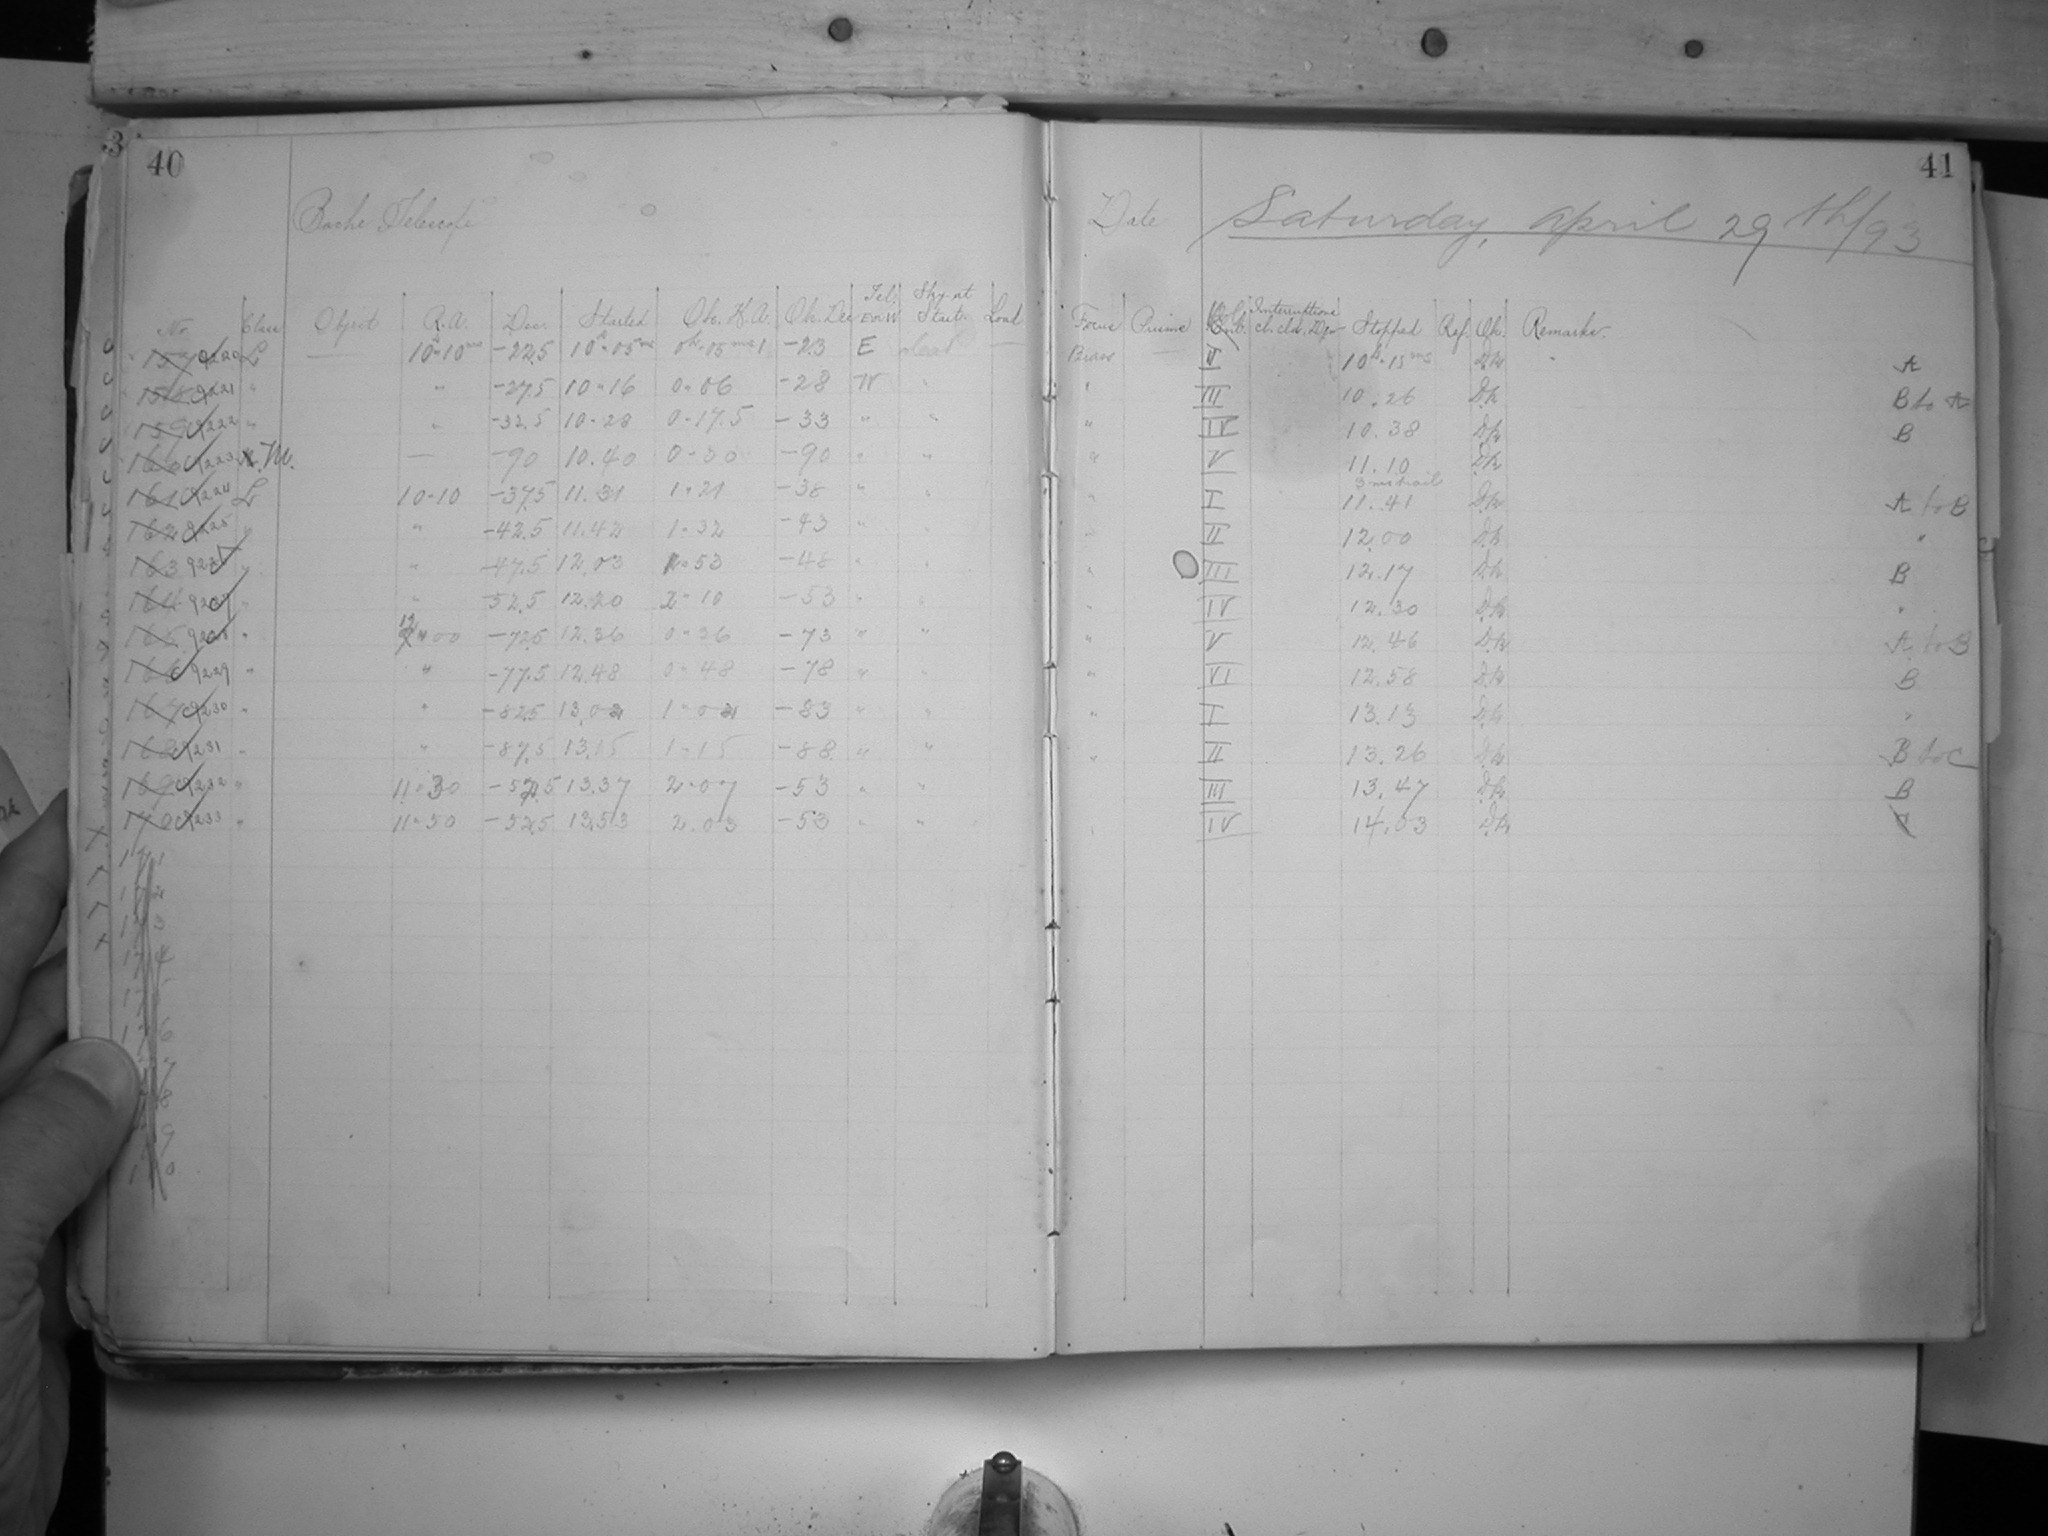 3
40
Bache Telescope
No. Class Object R.A. Dec. Started Obs. H.A. Ob. Dec Tel. E or W Sky at Start. Load
157 9220 L — 10h 10ms -22.5 10h 05ms -23 E clear —
158 9221 " " -27.5 10 - 16 0 - 06 -28 W "
159 9222 " " -32.5 10 - 28 0 - 17.5 -33 " "
160 9223 M. — -90 10.40 0 - 30 -90 " "
161 9224 L 10 - 10 -37.5 11.31 1 - 21 -38 " "
162 9225 " " -42.5 11.42 1 - 32 -43 " "
163 9226 " " -47.5 12.03 1 - 53 -48 " "
164 9227 " " 52.5 12.20 2 - 10 -53 " "
165 9228 " 12 - 00 -72.5 12.36 0 - 36 -73 " "
166 9229 " " -77.5 12.48 0 - 48 -78 " "
167 9230 " " -82.5 13.02 1 - 02 -83 " "
168 9231 " " -87.5 13.15 1 - 15 -88 " "
169 9232 " 11 - 30 -52.5 13.37 2 - 07 -53 " "
170 9233 " 11 - 50 -52.5 13.53 2.03 -53 " "
171
172
173
174
6
7
8
9
0
41
Date Saturday, April 29th/93
Focus Prisms Interruptions ch. clds. Dew Stopped Ref. Ob. Remarks.
Brass — II 10h 15ms D.k A
" III 10.26 D.k B to A
" IV 10.38 D.k B
" V 11.10 D.k
3 ms trail
" I 11.41 D.k A to B
" II 12.00 D.k "
" III 12.17 D.k B
" IV 12.30 D.k "
" V 12.46 D.k A to B
" VI 12.58 D.k B
" I 13.13 D.k "
" II 13.26 D.k B to C
III 13.47 D.k B
" IV 14.03 D.k